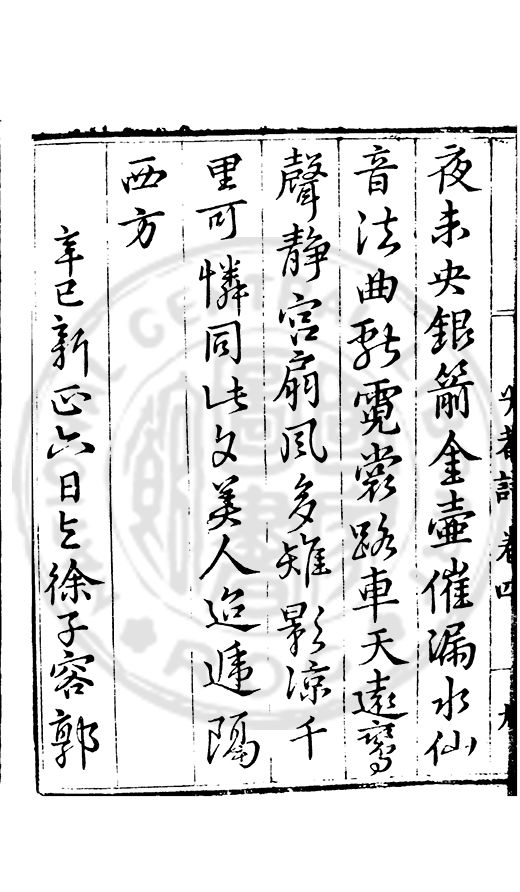 夜未央銀箭金壺催漏水仙
音法曲霓裳路車天遠鸞
聲靜宮扇風多雉影涼千
里可憐同此夕美人迢遞隔
西方
辛巳新正六日与徐子容郭
卷四